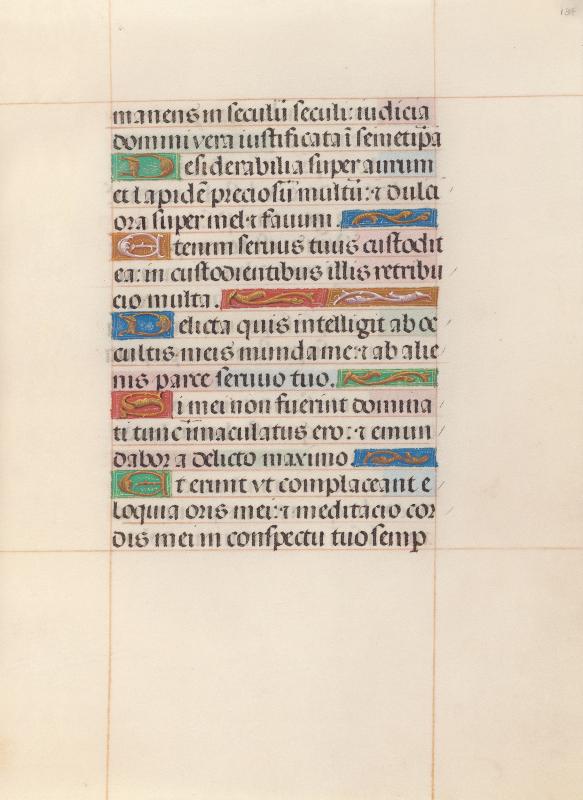 manens in seculū seculi: iudicia
domini vera iustificata ī semetip̄a
Desiderabilia super aurum
et lapidē preciosū multū: ⁊ dulci
ora super mel ⁊ fauum.
Etenim seruus tuus custodit
ea: in custodientibus illis retribu
cio multa.
Delicta quis intelligit ab oc
cultis meis munda me: ⁊ ab alie
nis parce seruuo tuo.
Si mei non fuerint domina
ti tunc īmaculatus ero: ⁊ emun
dabor a delicto maximo
Et erunt vt complaceant e
loquia oris mei: ⁊ meditacio cor
dis mei in conspectu tuo semp̄